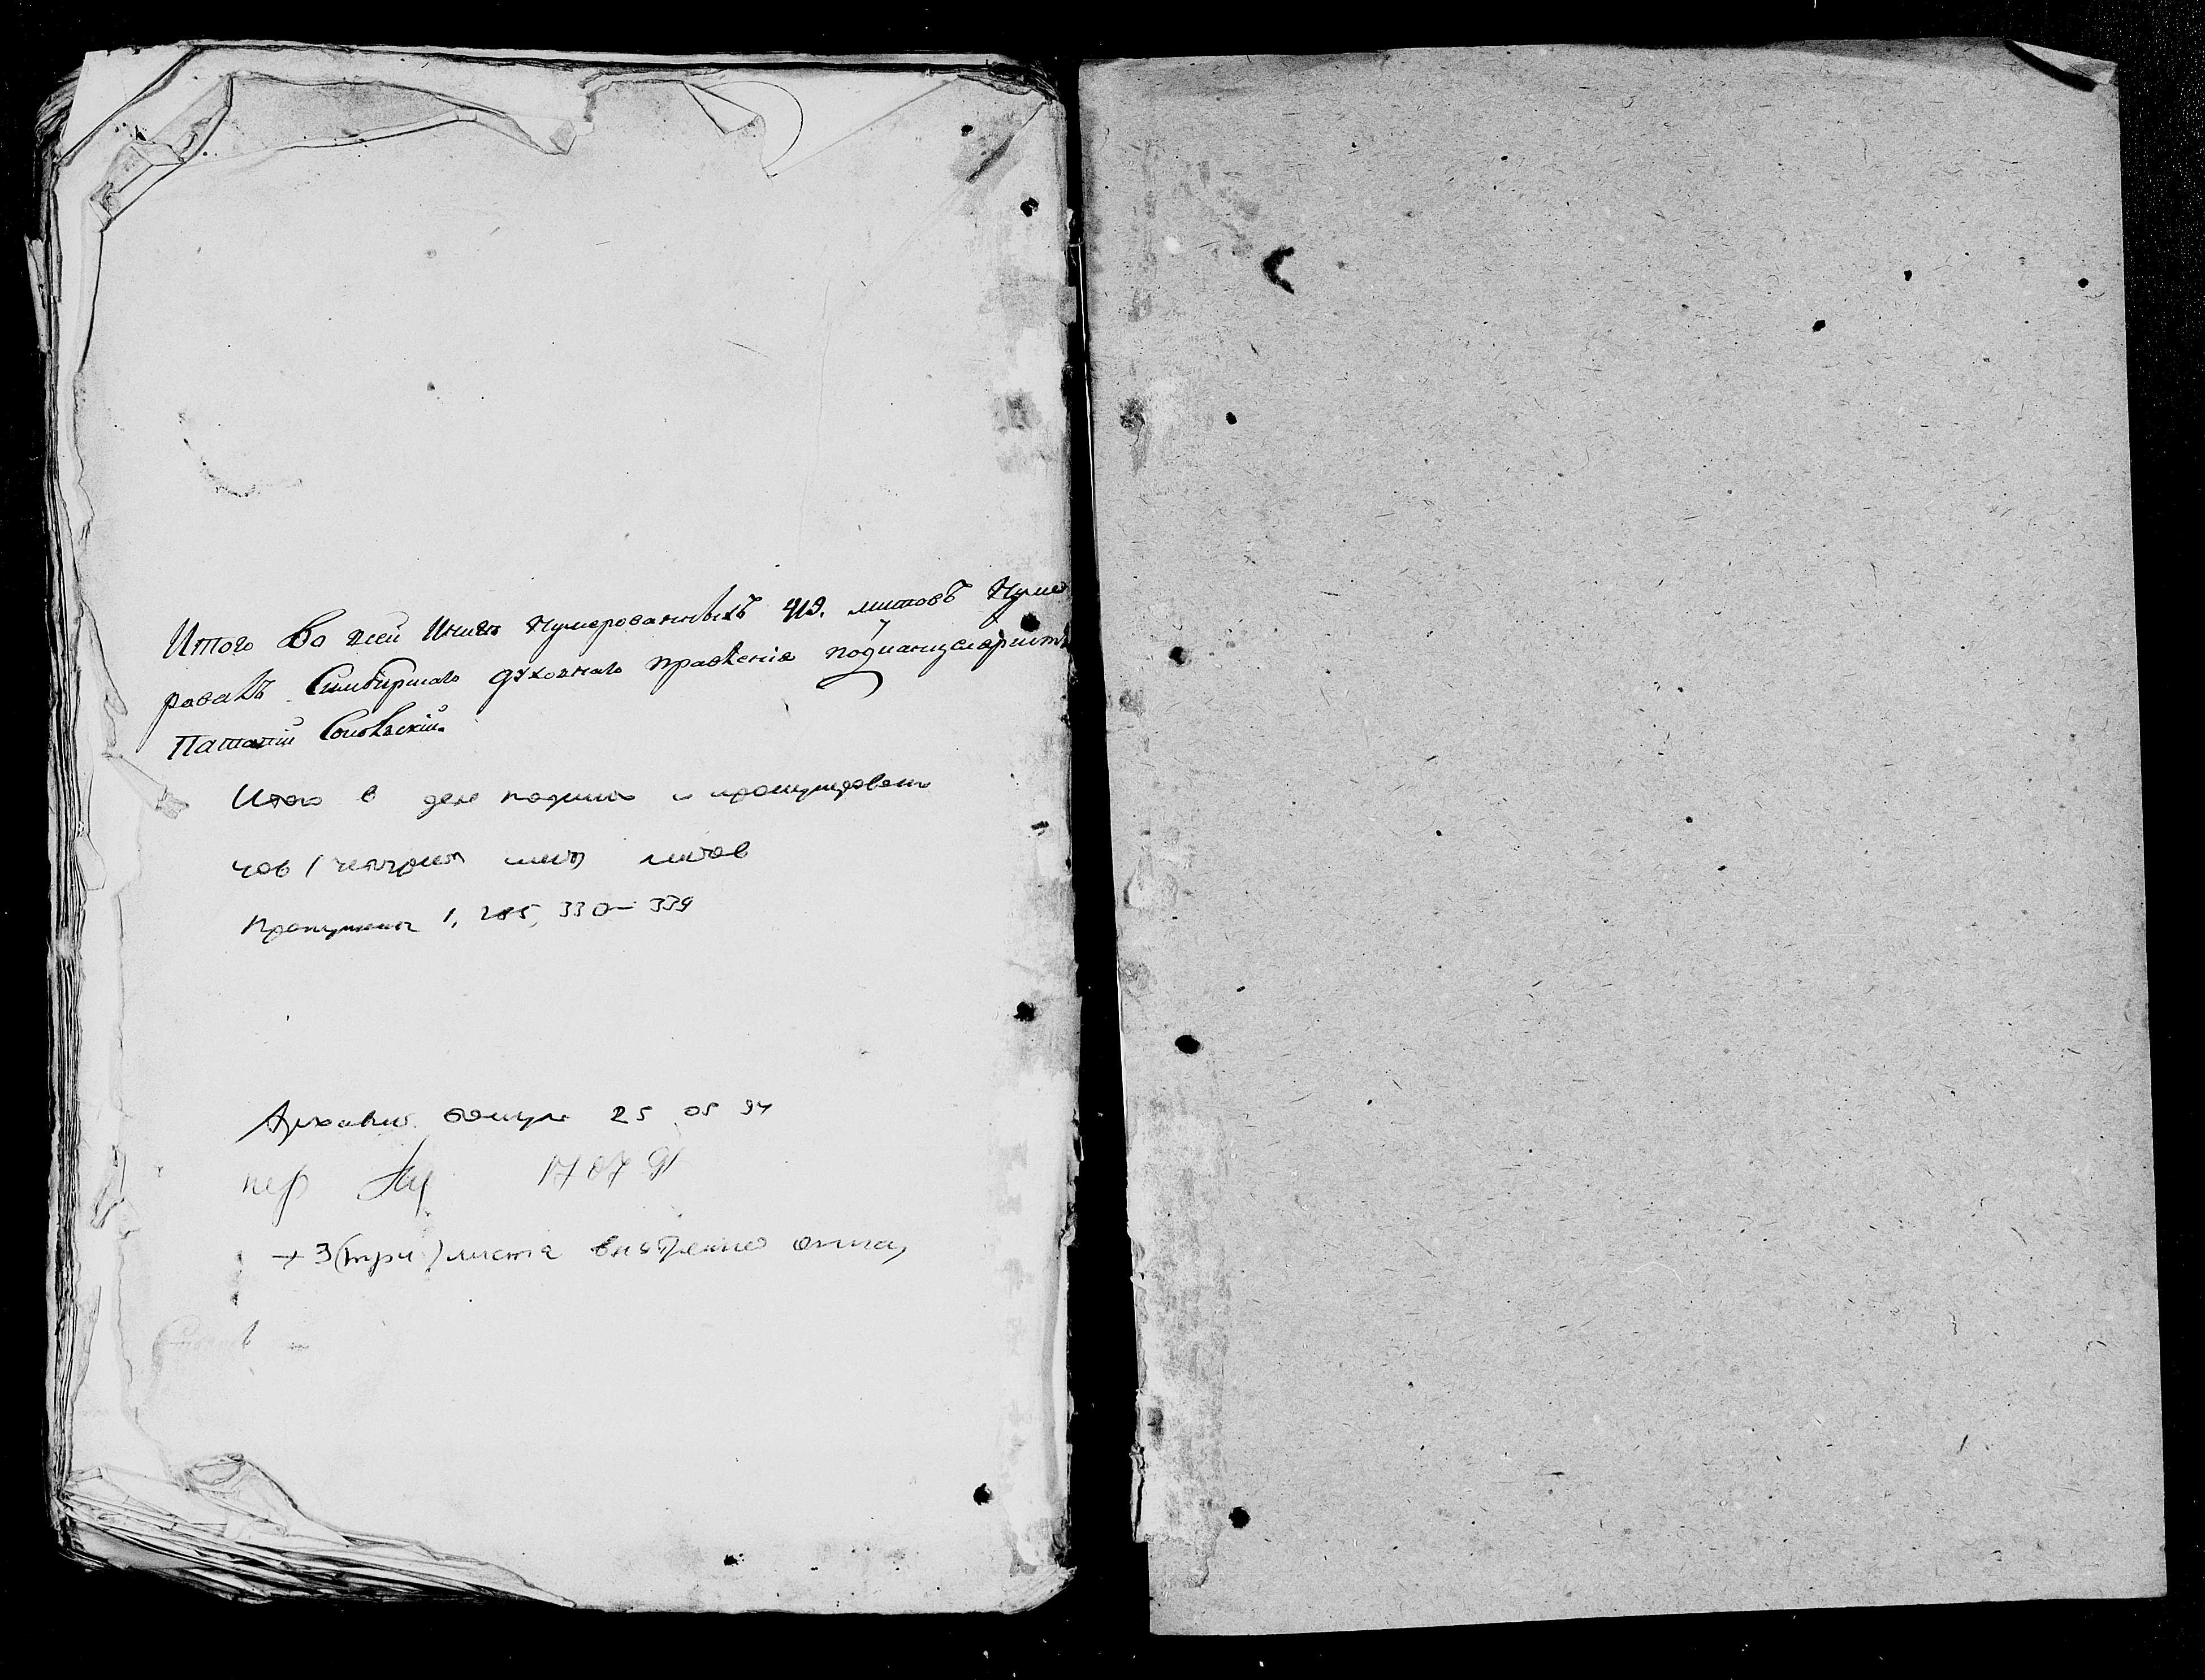 Итого Во всей Книге Нумерованныхъ 419. листовъ Нуме
ровалъ Симбирскаго духовнаго правленія подканцеляристъ
Потапій Соловскій.
Итого в деле подшито и пронумеровано
406 (четыреста шесть) листов
Пропущены 1, 285, 330–339
Архивист 25 05 94
пер 17 07 91
+ 3 (три) листа внутренней описи,